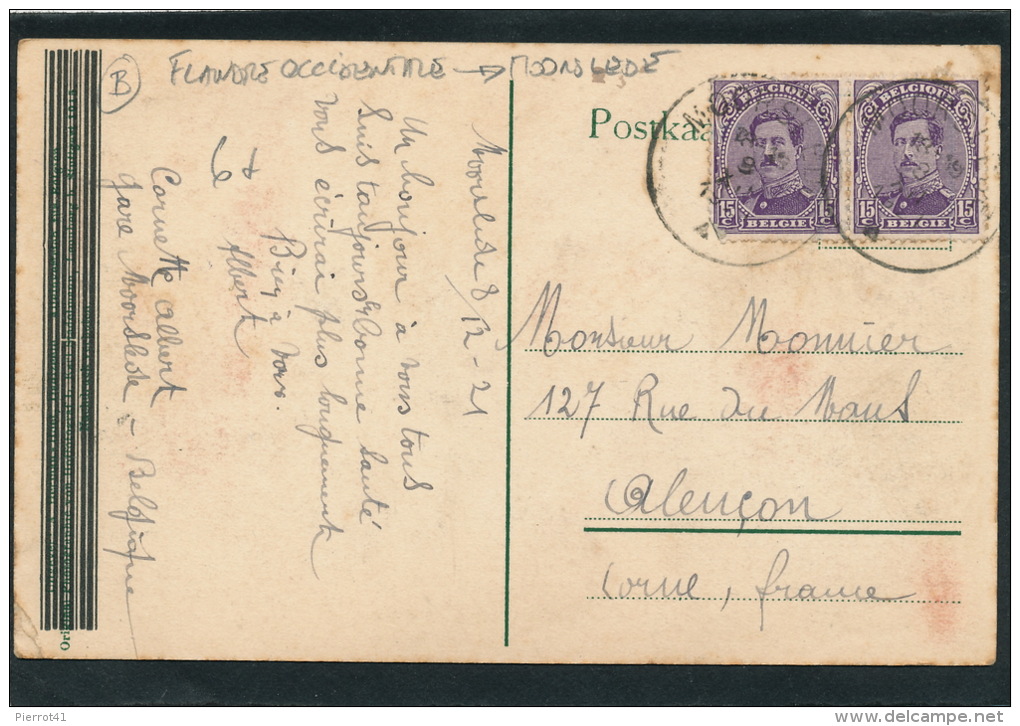 B
FLANDRE OCCIDENTALE → MOORSLEDE
Postkaa
BELGIQUE
15 C
15 C
BELGIE
BELGIQUE
15 C
15 C
BELGIE
Moorslede 8/12-21
Un bonjour à vous tous
Suis toujours bonne santé
vous écrirai plus longuement
Bien à vous.
Albert
Cornette Albert
gare Moorslede - Belgique
Monsieur Monnier
127 Rue du Mans
Alençon
Orne, france
Pierrot41
delcampe.net